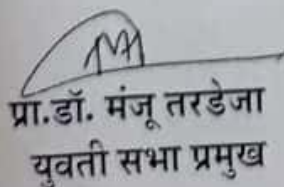 प्रा.डॉ. मंजू तरडेजा
युवती सभा प्रमुख